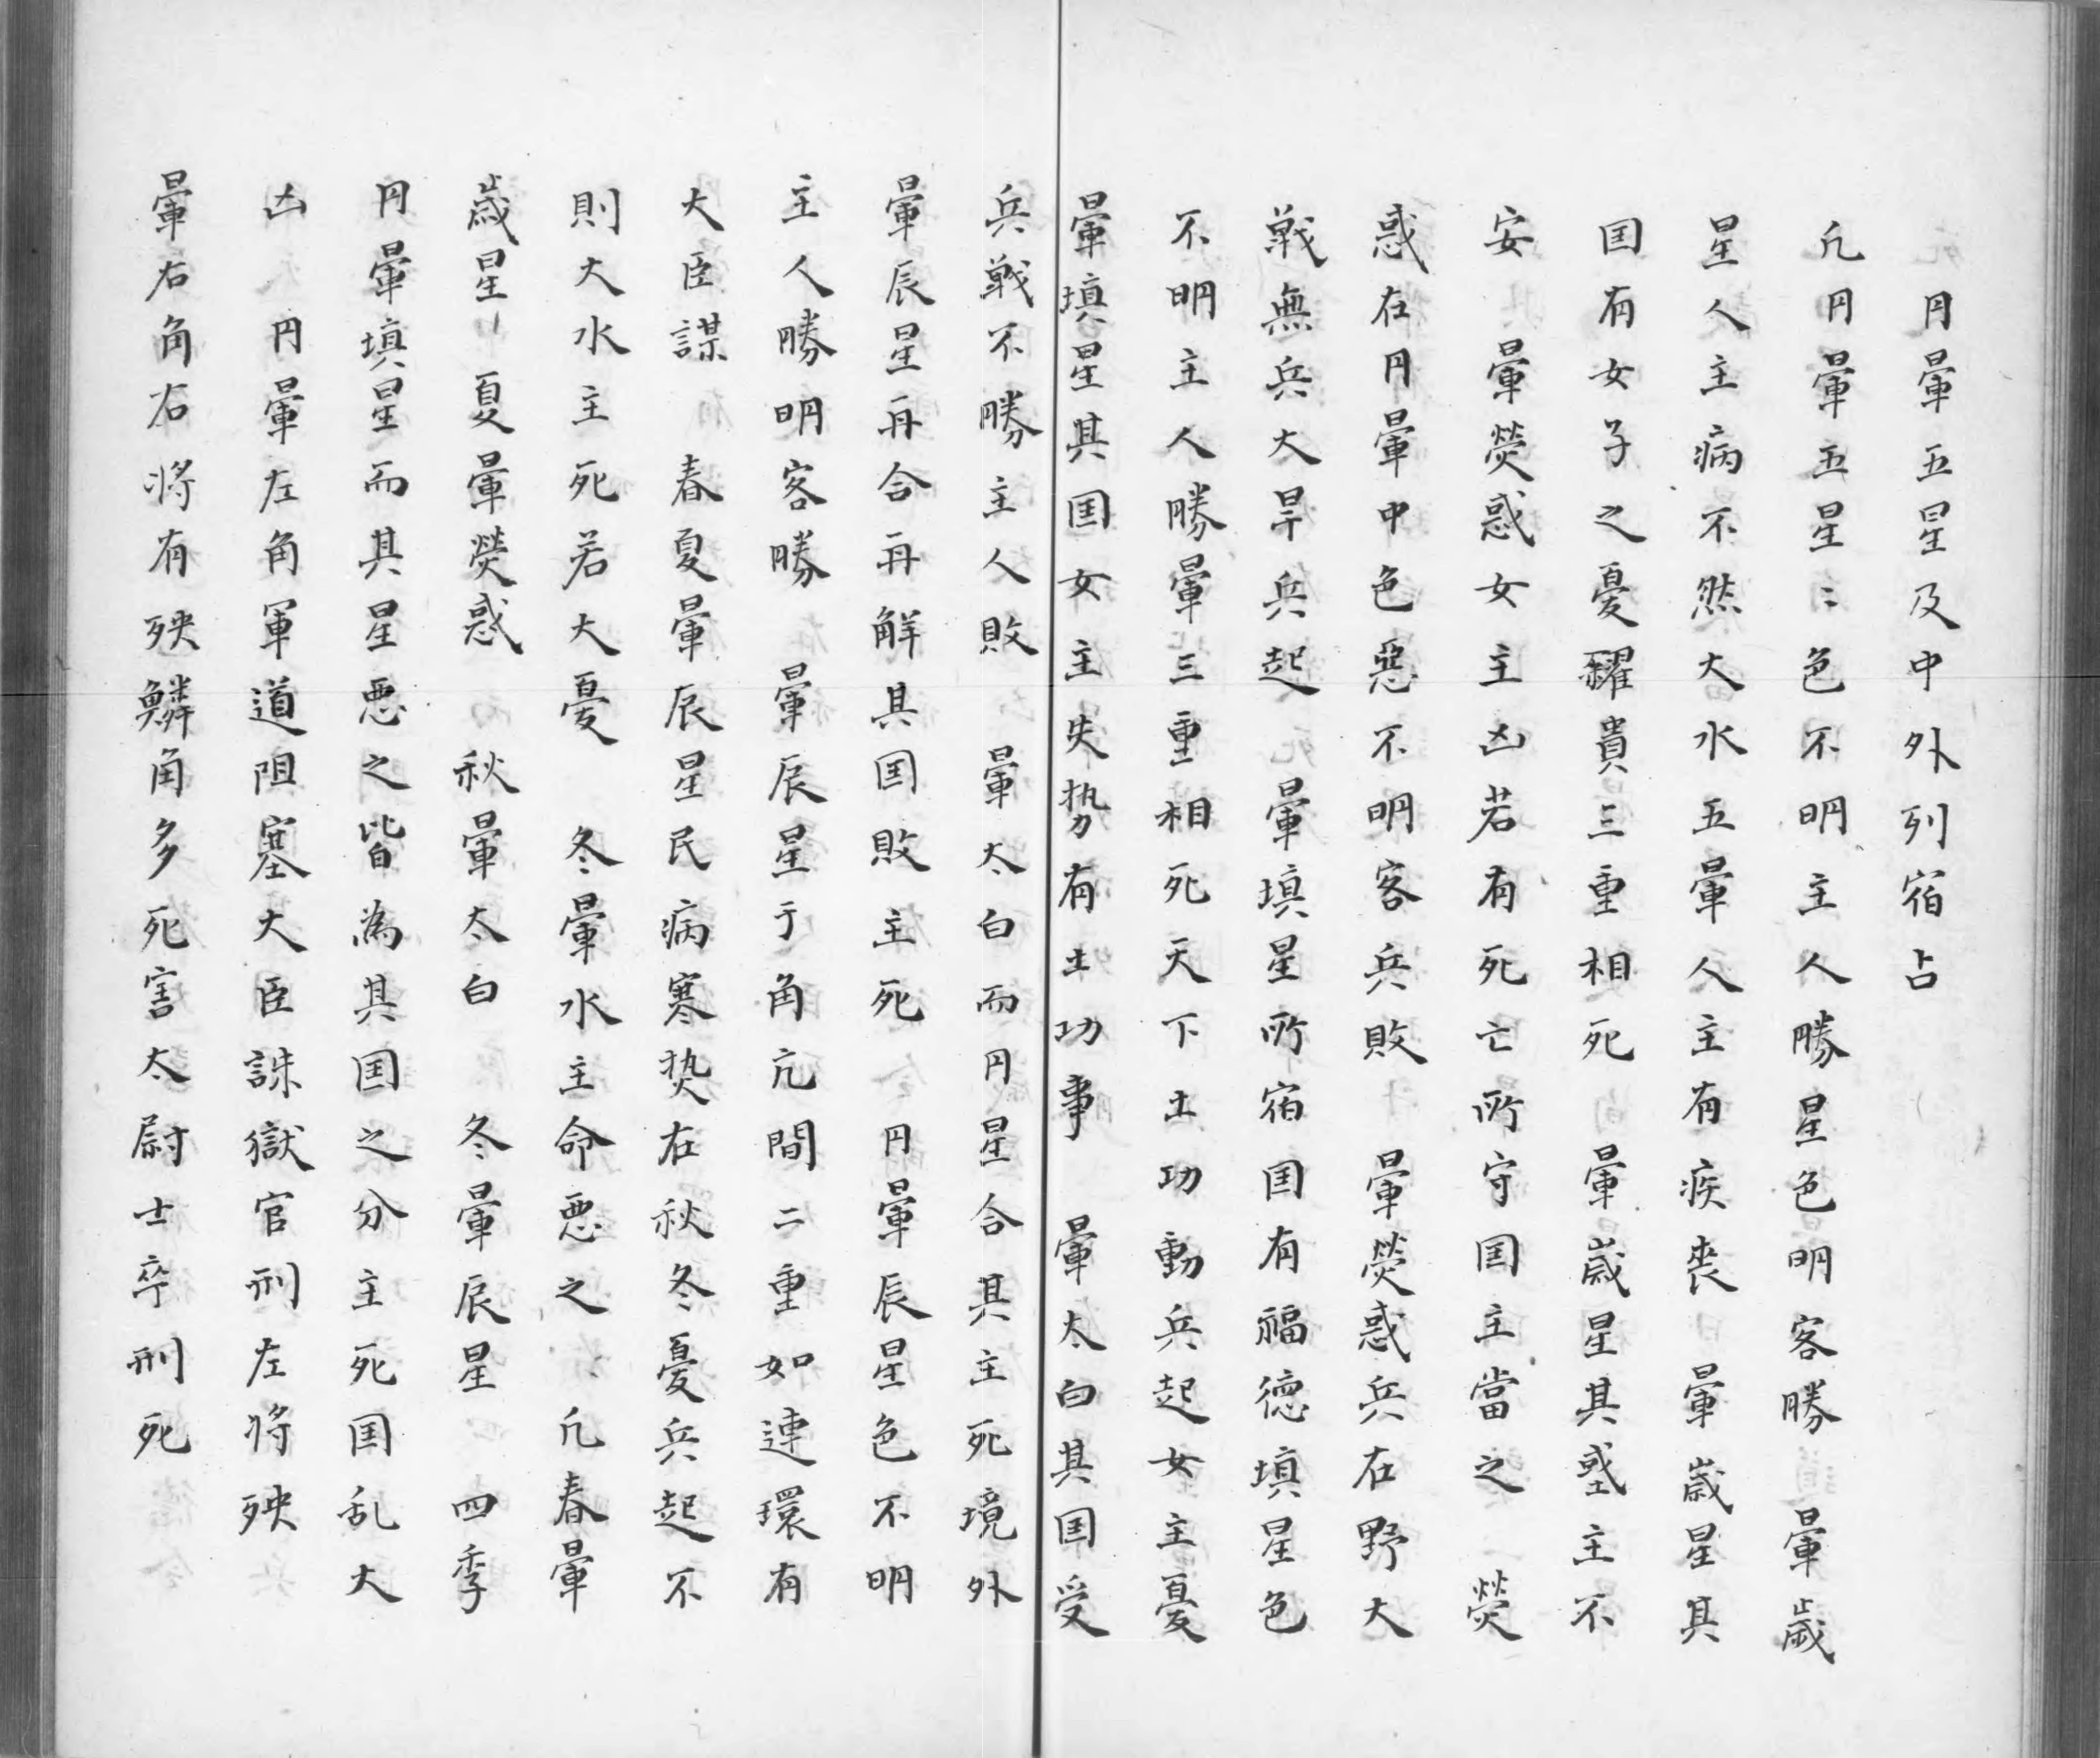 円暈五星及中外列宿占
凢円暈五星〻色不明主人勝星色明客勝　暈歳
星人主病不然大水五暈人主有疾喪　暈歳星其
囯有女子之憂糴貴三重相死　暈歳星其国主不
安　暈熒惑女主凶若有死亡所守囯主當之　熒
惑在円暈中色惡不明客兵敗　暈熒惑兵在野大
戦無兵大旱兵起　暈填星所宿囯有福徳填星色
不明主人勝暈三重相死天下土功動兵起女主憂
暈填星其囯女主失勢有土功事　暈太白其囯受
兵戦不勝主人敗　暈太白而円星合其主死境外
暈辰星再合再解其囯敗主死　円暈辰星色不明
主人勝明客勝　暈辰星于角亢間二重如連環有
大臣謀　春夏暈辰星民病寒𤍠在秋冬憂兵起不
則大水主死若大憂　冬暈水主命悪之　凢春暈
歳星　夏暈熒惑　秋暈太白　冬暈辰星　四季
円暈填星而其星悪之皆為其囯之分主死囯乱大
凶　円暈左角軍道阻塞大臣誅獄官刑左将殃
暈右角右将有殃鱗角多死害太尉士卒刑死